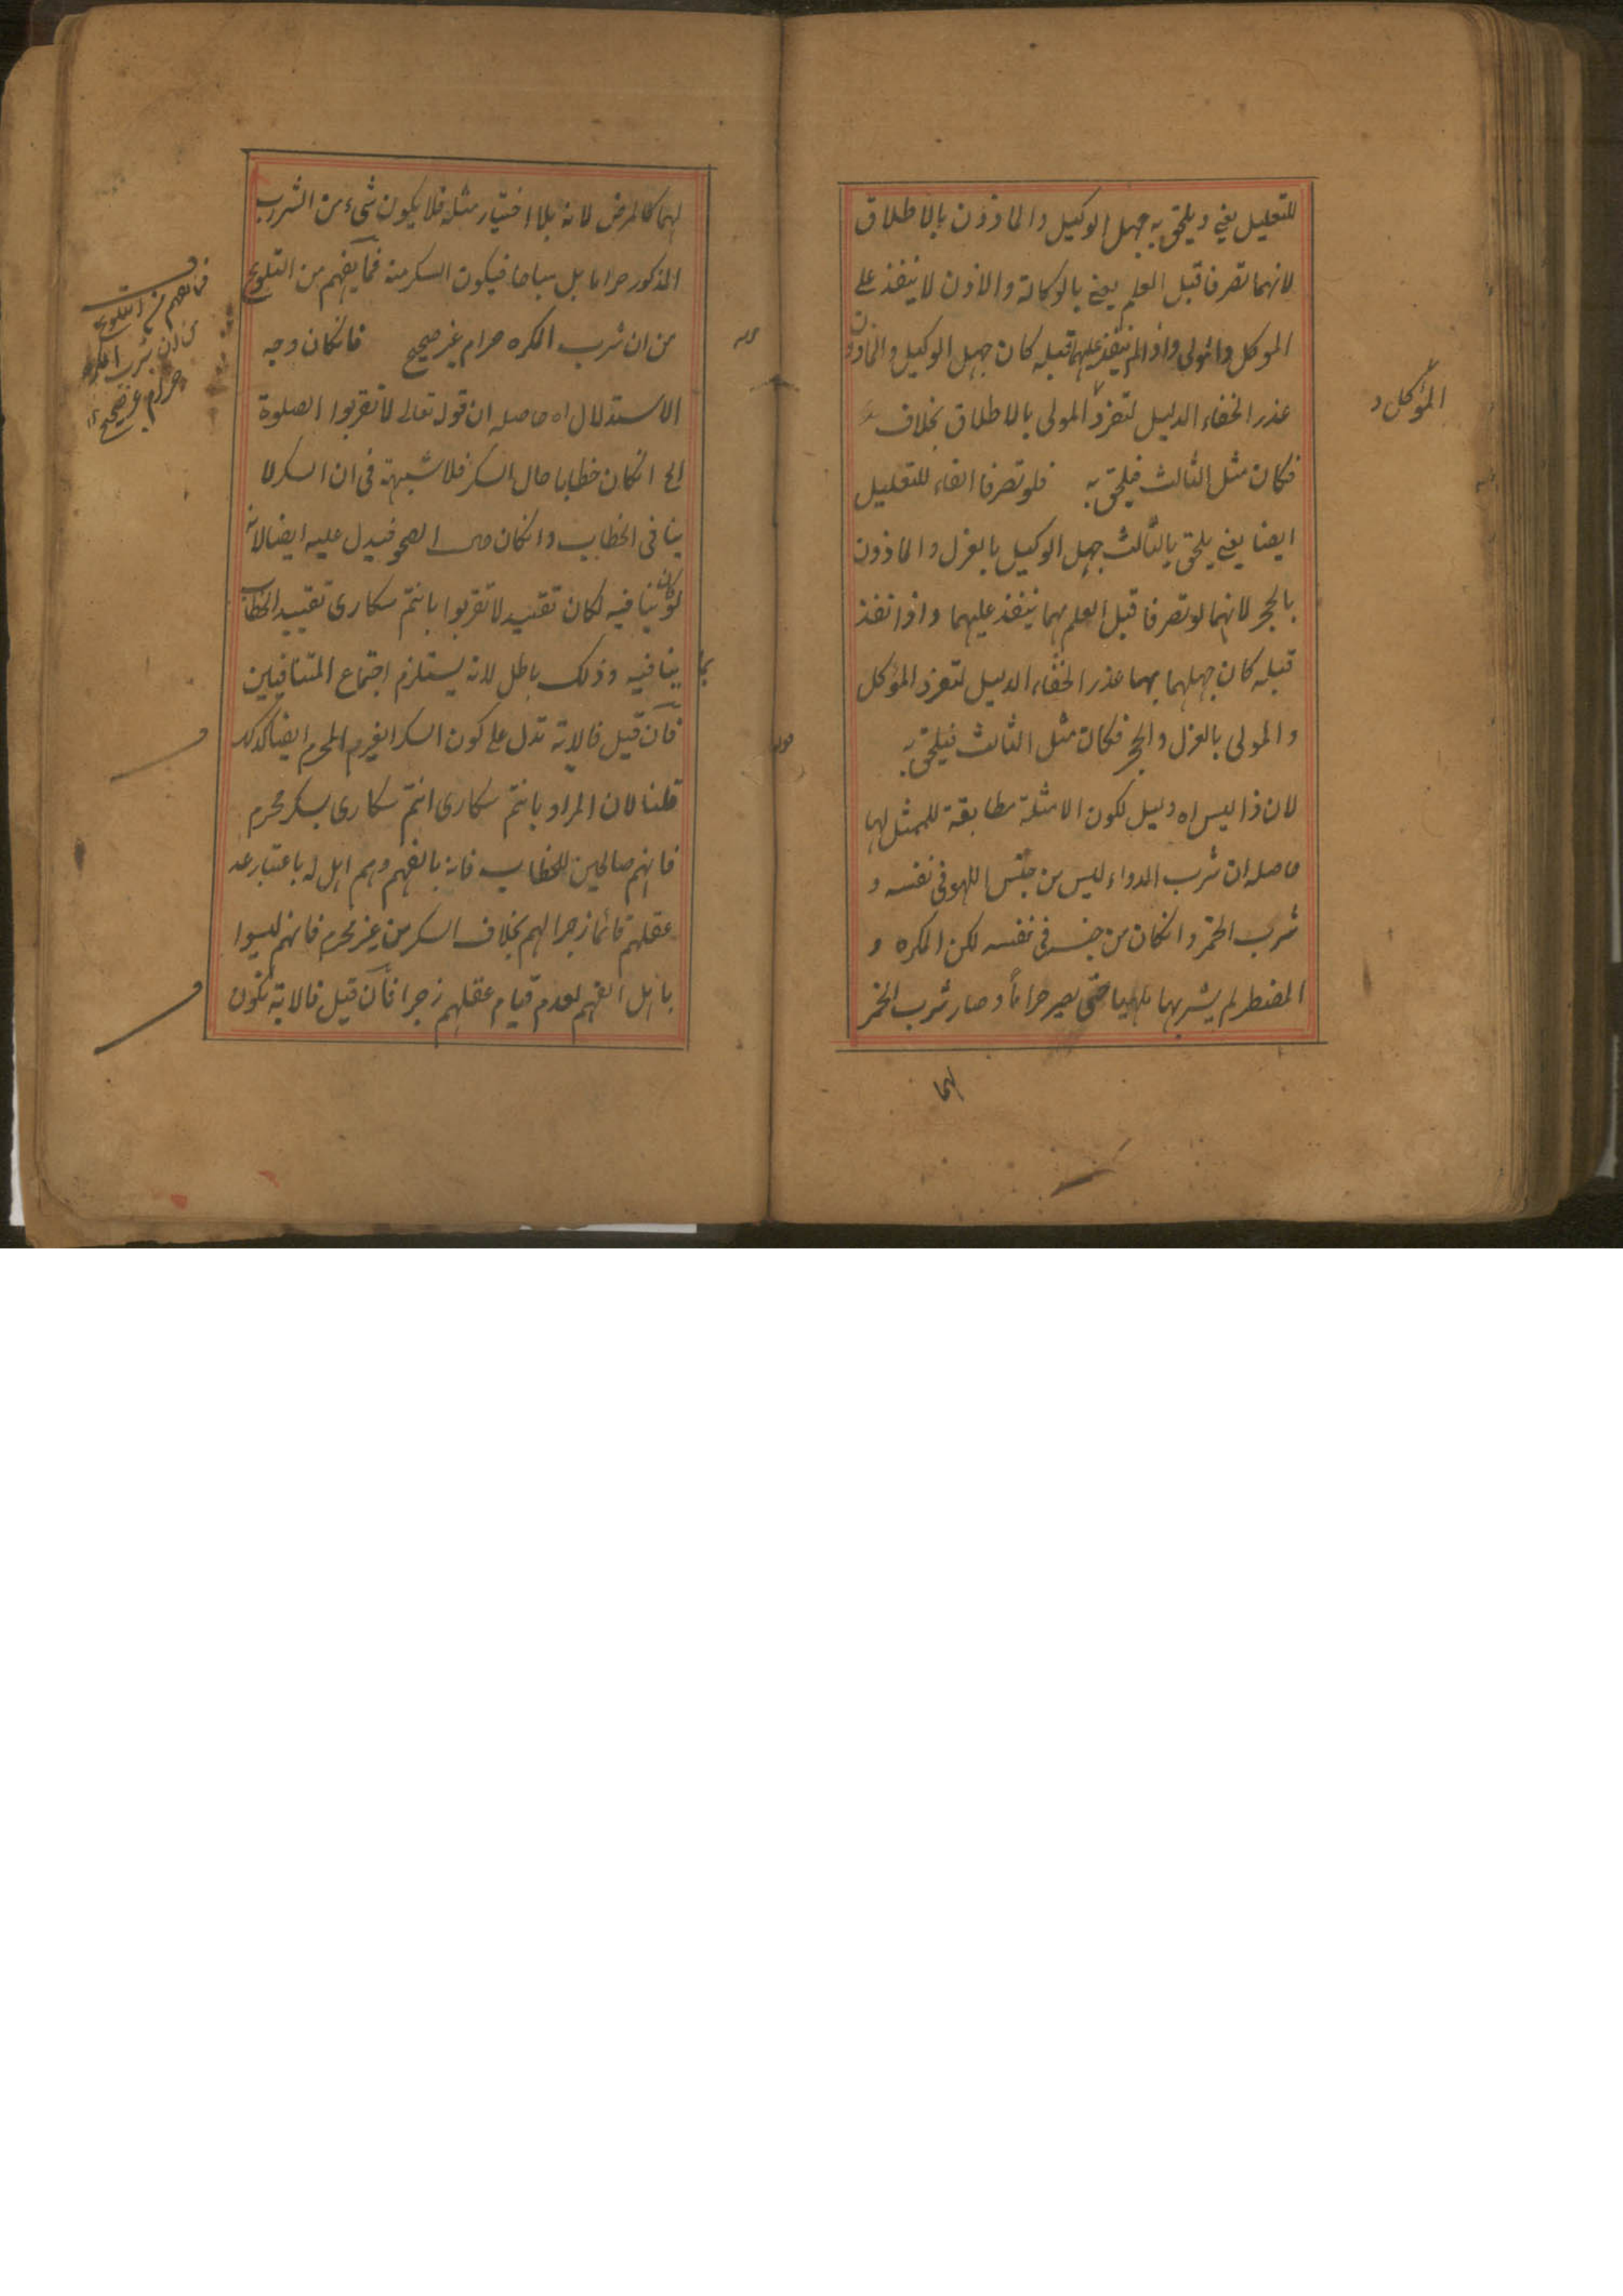 للتعليل يعني ويلحق به جهل الوكيل والماذون بالاطلاق
لانهما لو تصرفا قبل العلم يعني بالوكالة والاذن لا ينفذ على
الموكل والمولى واذا لم ينفذ عليهما قبله كان جهل الوكيل والماذون
عذر الخفاء الدليل لتفرد المولى بالاطلاق بخلاف
المؤكل و
فكان مثل الثالث فيلحق به فلو تصرفا الفاء للتعليل
ايضا يعني يلحق بالثالث جهل الوكيل بالعزل والماذون
بالحجر لانهما لو تصرفا قبل العلم بهما ينفذ عليهما واذا نفذ
قبله كان جهلهما بهما عذر الخفاء الدليل لتفرد المؤكل
والمولى بالعزل والحجر فكان مثل الثالث فيلحق به
لان ذا ليس اه دليل لكون الامثلة مطابقة للممثل لها
حاصله ان شرب الدواء ليس من جنس اللهو في نفسه و
شرب الخمر وانكان من جنسه في نفسه لكن المكره و
المضطر لم يشربها تلهيا حتى يصير حراماً وصار شرب الخمر
لهما
لهما كالمرض لانه بلا اختيار مثله فلا يكون شيء من الشرب
المذكور حراما بل مباحا فيكون السكر منه فما يفهم من التلويح
من ان شرب المكره حرام غير صحيح فانكان وجه
فما يفهم من التلويح
من ان شرب المكره
حرام غير صحيح
الاستدلال اه حاصله ان قوله تعالى لا تقربوا الصلوة
الخ انكان خطابا حال السكر فلا شبهة في ان السكر لا
ينافي الخطاب وانكان حال الصحو فيدل عليه ايضا لانه
لو كان ينافيه لكان تقييد لا تقربوا بانتم سكارى تقييد الخطاب
بما ينافيه وذلك باطل لانه يستلزم اجتماع المتنافيين
فان قيل فالاية تدل على كون السكر الغير المحرم ايضا كذلك
قلنا لان المراد بانتم سكارى انتم سكارى بسكر محرم
فانهم صالحين للخطاب فانه بالفهم وهم اهل له باعتبار عد
عقلهم قائما زجرا لهم بخلاف السكر من غير محرم فانهم ليسوا
باهل الفهم لعدم قيام عقلهم زجرا فان قيل فالاية تكون